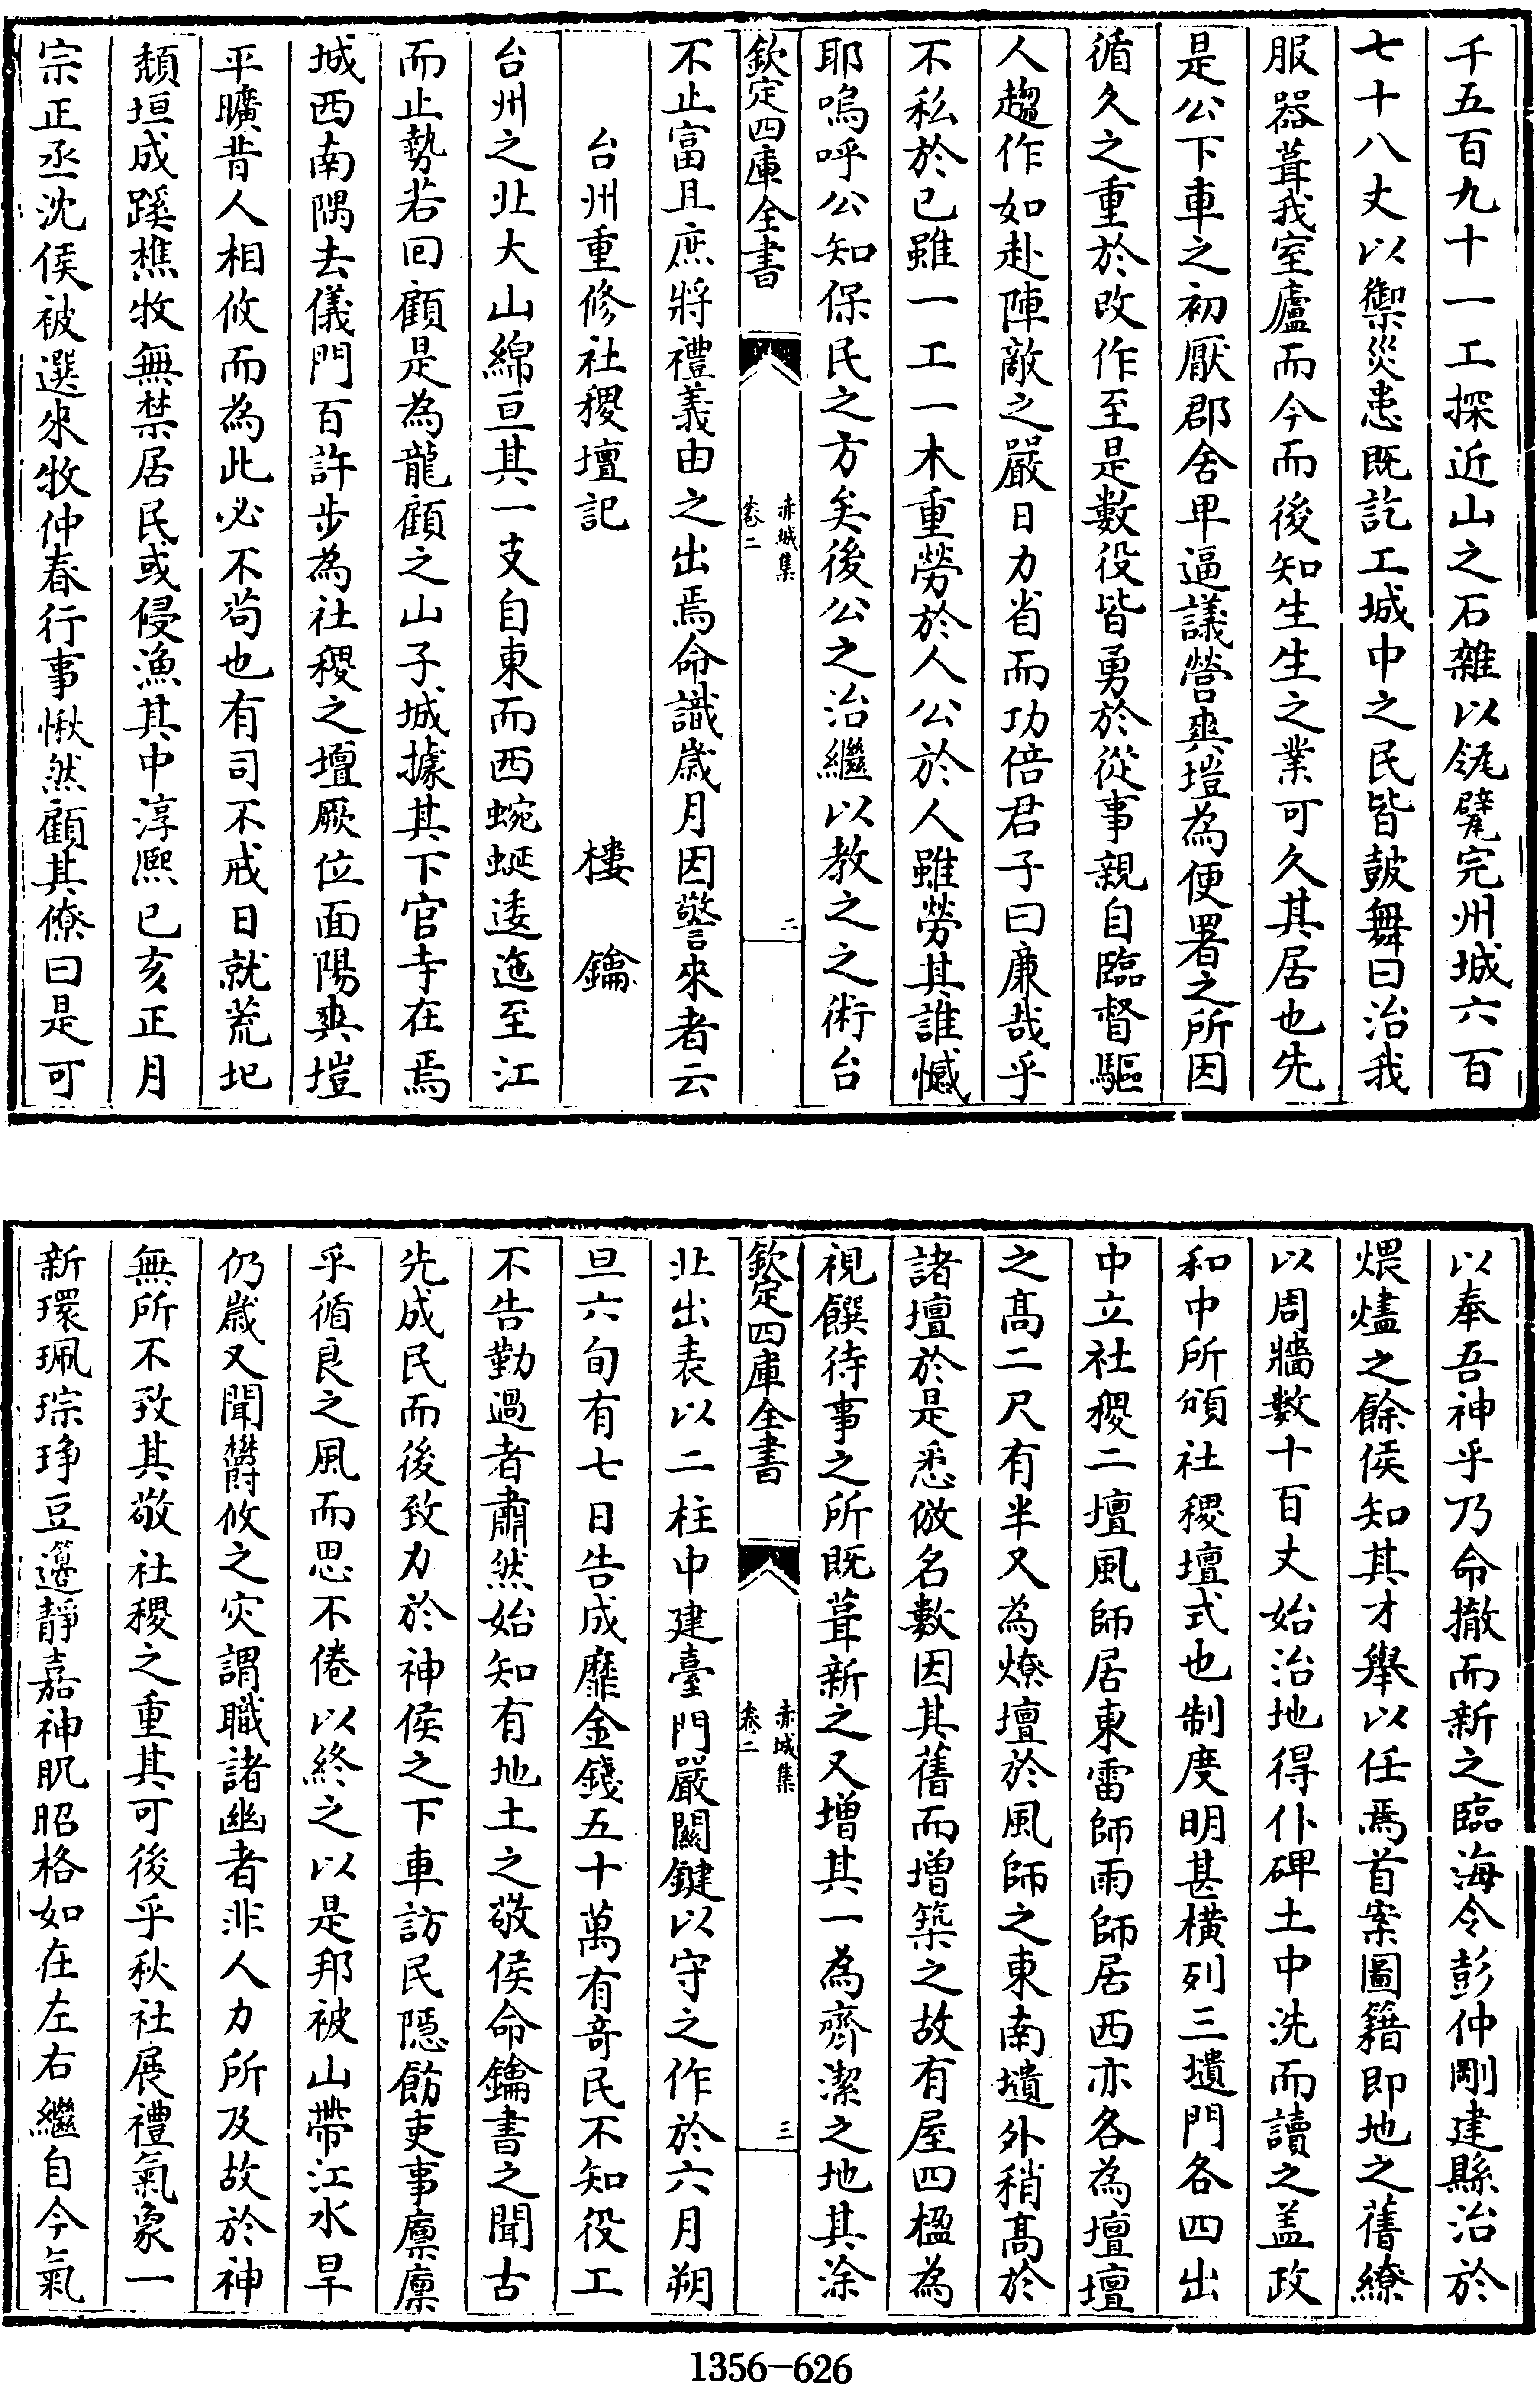 千五百九十一工探近山之石雜以瓴甓完州城六百
七十八丈以禦災患既訖工城中之民皆鼓舞曰治我
服器葺我室廬而今而後知生生之業可久其居也先
是公下車之初厭郡舍卑逼議營爽塏為便署之所因
循久之重於改作至是數役皆勇於從事親自臨督驅
人趨作如赴陣敵之嚴日力省而功倍君子曰廉哉乎
不私於已雖一工一木重勞於人公於人雖勞其誰憾
耶嗚呼公知保民之方矣後公之治繼以教之之術台
欽定四庫全書
赤城集
卷二
二
不止富且庶將禮義由之出焉命識歲月因警來者云
台州重修社稷壇記 樓鑰
台州之北大山綿亘其一支自東而西蜿蜒逶迤至江
而止勢若回顧是為龍顧之山子城據其下官寺在焉
城西南隅去儀門百許步為社稷之壇厥位面陽爽塏
平曠昔人相攸而為此必不苟也有司不戒日就荒圯
頹垣成蹊樵牧無禁居民或侵漁其中淳熙已亥正月
宗正丞沈侯被選來牧仲春行事愀然顧其僚曰是可
以奉吾神乎乃命撤而新之臨海令彭仲剛建縣治於
煨燼之餘侯知其才舉以任焉首案圖籍即地之舊繚
以周牆數十百丈始治地得仆碑土中洗而讀之盖政
和中所頒社稷壇式也制度明甚横列三壝門各四出
中立社稷二壇風師居東雷師雨師居西亦各為壇壇
之髙二尺有半又為燎壇於風師之東南壝外稍髙於
諸壇於是悉倣名數因其舊而增築之故有屋四楹為
視饌待事之所既葺新之又增其一為齊潔之地其涂
欽定四庫全書
赤城集
卷二
三
北出表以二柱中建臺門嚴闗鍵以守之作於六月朔
旦六旬有七日告成靡金錢五十萬有奇民不知役工
不告勤過者肅然始知有地土之敬侯命鑰書之聞古
先成民而後致力於神侯之下車訪民隠飭吏事廪廪
乎循良之風而思不倦以終之以是邦被山帶江水旱
仍歲又聞欎攸之灾謂職諸幽者非人力所及故於神
無所不致其敬社稷之重其可後乎秋社展禮氣象一
新環珮琮琤豆籩靜嘉神貺昭格如在左右繼自今氣
1356-626